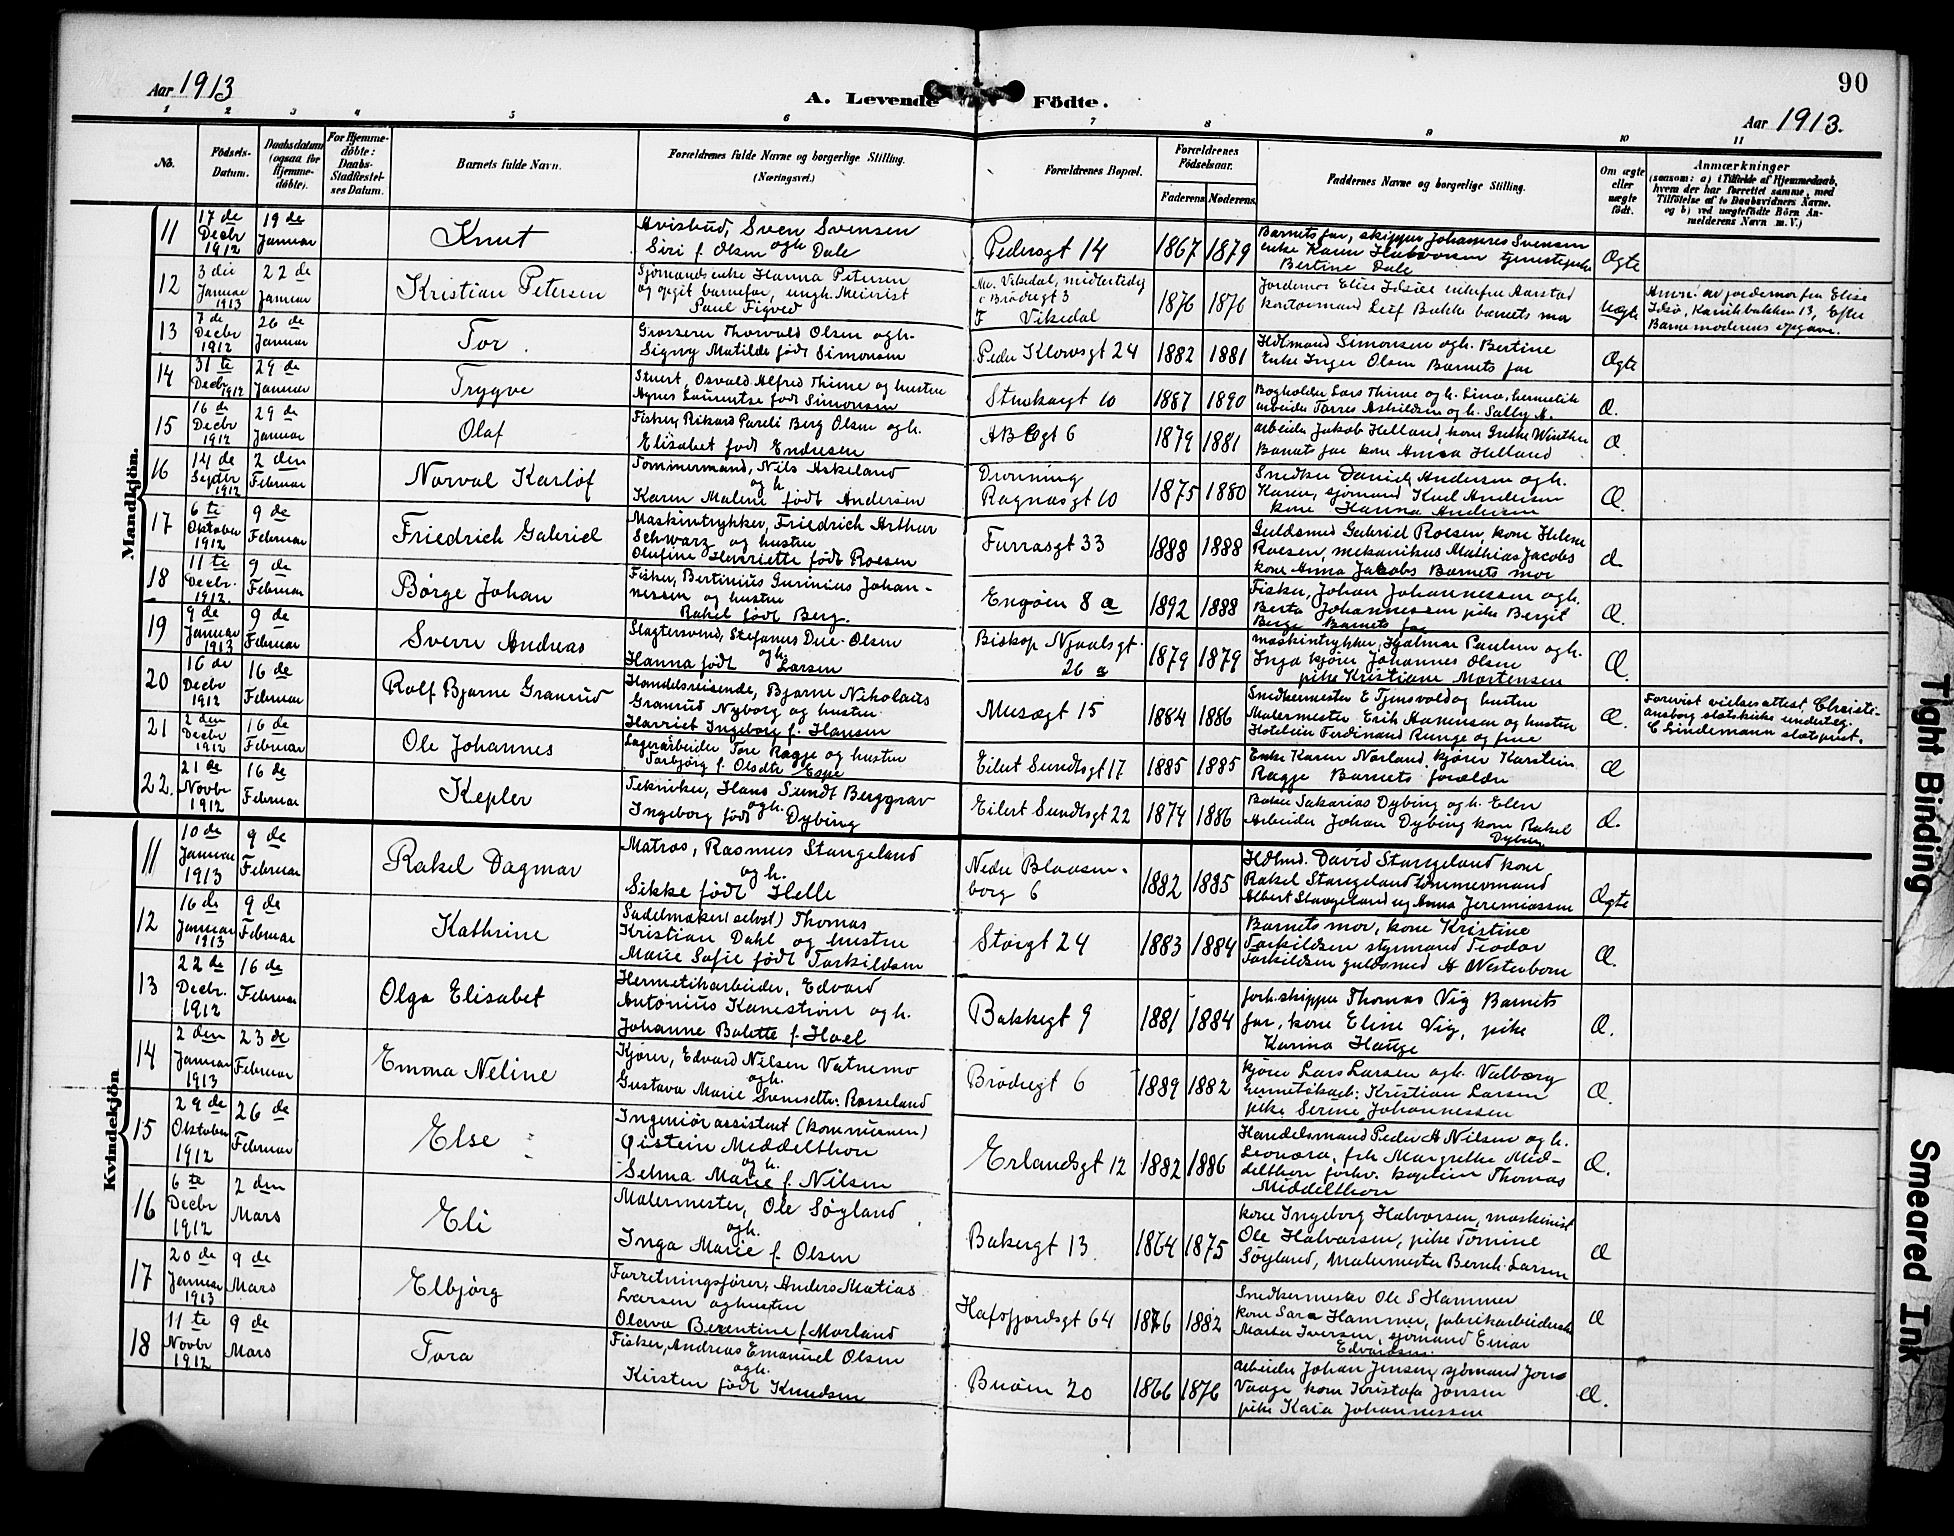 Aar 1913
A. Levende Födte.
90
Aar 1913.
1 2 3 4 5 6 7 8 9 10 11
No.
Födsels-Datum.
Daabsdatum (ogsaa for Hjemmedöbte).
For Hjemmedöbte: Daabs-Stadfæstelses Datum.
Barnets fulde Navn.
Forældrenes fulde Navne og borgerlige Stilling. (Næringsvei.)
Forældrenes Bopæl.
Forældrenes Födselsaar.
Faderens. Moderens.
Faddernes Navne og borgerlige Stilling.
Om ægte eller uægte födt.
Anmærkninger
(saasom: a) i Tilfælde af Hjemmedaab, hvem der har forrettet samme, med Tilföielse af to Daabsvidners Navne. og b) ved uægtefödte Börn Anmelderens Navn m. V.)
Mandkjön.
11 17 de Decbr 1912 19 de Januar Knut
Avisbud, Sven Svensen
Siri f. Olsen ogh Dale
Pedersgt 14 1867 1879
Barnets far, skipper Johannes Svensen
enke Karen Halvorsen tjenestepike
Bertine Dale
Ægte
12 3 die Januar 1913 22 de Januar Kristian Petersen
Sjømandsenke Hanna Petersen
og opgit barnefar, ungk. Meierist
Paul Figved
M. Vikedal, midlertidig
i Brödregt 3
F Vikedal
1876 1876
Jordmor Elise Idsöe
kontormand Leif Bakke barnets mor
uægte
Anm. av jordemor fru Elise
Idsø, Kanikbakken 13, Efter
Barnemoderens opgave.
13 7 de Decbr 1912 26 de Januar Tor.
Grosserer Thorvald Olsen ogh.
Signy Matilde født Simonsen
Peder Klowsgt 24 1882 1881
Hdlmand Simonsen ogh. Bertine
Enke Inger Olsen Barnets far
Ægte
14 31 te Decbr 1912 29 de Januar Trygve
Stuert, Osvald Alfred Thime og hustru
Agnes Laurentse født Simonsen
Stenkargt 10 1887 1890
Bogholder Lars Thime og h. Lina, hermetik
arbeider Torres Askildsen og h. Sally A.
Æ.
15 16 de Decbr 1912 29 de Januar Olaf
Fisker, Rikard Pareli Berg Olsen ogh.
Elisabet født Endresen
A B Cgt 6 1879 1881
arbeider Jakob Helland, kone Grethe Winther
Barnets far kone Anna Helland
Æ
16 14 de Septbr 1912 2 den Februar Norval Karlöf
Tømmermand, Nils Askeland
og h.
Karen Malene født Andersen
Dronning
Ragnasgt 10
1875 1880
Snedker Daniel Andersen og h.
Karen, sjømand Karl Andersen
kone Hanna Andersen
Æ.
17 6 te Oktober 1912 9 de Februar Friedrich Gabriel
Maskintrykker, Friedrich Arthur
Schwarz og hustru
Olufine Henriette født Roesen
Furrasgt 33 1888 1888
Guldsmed Gabriel Roesen, kone Helene
Roesen, mekanikus Mathias Jacobs
kone Anna Jakobs Barnets mor
Æ.
18 11 te Decbr. 1912. 9 de Februar Børge Johan
Fisker, Bertinius Gurinius Johan-
nessen og hustru
Rakel født Berg.
Engøien 8 a 1892 1888
Fisker, Johan Johannessen ogh.
Berta Johannessen pike Bergit
Berge Barnets far
Æ.
19 9 de Januar 1913 9 de Februar Sverre Andreas
Slagtersvend, Stefanus Due Olsen
og h.
Hanna født Larsen
Biskop Njaalsgt.
26 a
1879 1879
maskintrykker, Hjalmar Paulsen ogh.
Inga kjører Johannes Olsen
pike Kristiane Mortensen
Æ.
20 16 de Decbr 1912 16 de Februar Rolf Bjarne Granrud
Handelsreisende, Bjarne Nikolaus
Granrud Nyborg og hustru
Harriet Ingeborg f. Hansen
Musægt 15 1884 1886
Snedkermester E Tjensvold og hustru
Malermester Erik Hanensen og hustru
Hoteleier Ferdinand Runge og frue
Æ.
Forevist vielsesattest Christi-
ansborg slotskirke undertegn.
C Lindemann slotsprest.
21 2 den Decbr 1912 16 de Februar Ole Johannes
Lagerarbeider Tore Ragje og hustru
Torbjørg f. Olsdtr Espe
Eilert Sundtsgt 17 1885 1885
Enke Karen Norland, kjører Karstein
Ragje Barnets forældre
Æ
22. 21 de Novbr 1912 16 de Februar Kepler
Tekniker, Hans Sundt Berggrav
ogh.
Ingeborg født Dybing
Eilert Sundtsgt 22 1874 1886
Baker Sakarias Dybing og h. Elen
Arbeider Johan Dybing kone Rakel
Dybing
Æ.
Kvindekjön
11 10 de Januar 1913 9 de Februar Rakel Dagmar
Matros, Rasmus Stangeland
og h.
Sikke født Helle
Nedre Blaasen-
borg 6
1882 1885
Hdlmd. David Stangeland kone
Rakel Stangeland tømmermand
Albert Stangeland og Anna Jeremiassen
Ægte
12 16 de Januar 1913 9 de Februar Kathrine
Sadelmaker (selvst) Thomas
Kristian Dahl og hustru
Marie Sofie født Torkildsen
Storgt 24 1883 1884
Barnets mor, kone Kristine
Torkildsen styrmand Teodor
Torkildsen guldsmed A Westerborn
Æ.
13 22 de Decbr. 1912 16 de Februar Olga Elisabet
Hermetikarbeider, Edvard
Antonius Kanestrøm og h.
Johanne Bolette f. Hoel
Bakkegt 9 1881 1884
forh. skipper Thomas Vig Barnets
far, kone Eline Vig, pike
Karina Hauge
Æ.
14 2 den Januar 1913 23 de Februar Emma Neline
Kjører, Edvard Nilsen Vatnemo
ogh.
Gustava Marie Svensdtr. Rosseland
Brødregt 6 1889 1882
kjører Lars Larsen og h. Valborg
hermetikarb: Kristian Larsen
pike Serine Johannessen
Æ.
15 29 de Oktober 1912 26 de Februar Else
Ingeniørassistent (kommunen)
Øistein Middelthon
og h.
Selma Marie f. Nilsen
Erlandsgt 12 1882 1886
Handelsmand Peder A Nilsen og h.
Leonora, frk Margrethe Mid-
delthon forhv. kaptein Thomas
Middelthon
Æ.
16 6 te Decbr 1912 2 den Mars Eli
Malermester, Ole Søyland
ogh.
Inga Marie f. Olsen
Bakergt 13. 1864 1875
kone Ingeborg Halvorsen, maskinist
Ole Halvorsen, pike Tomine
Søyland, Malermester Bernh. Larsen
Æ
17 20 de Januar 1913 9 de Mars Elbjørg
Forretningsfører, Anders Matias
Larsen og hustru
Olava Berentine f Morland
Hafsfjordsgt 64 1876 1882
Snedkermester Ole S Hammer
kone Sara Hammer, fabrikarbeiderske
Marta Iversen, sjømand Einar
Edvardsen.
Æ
18 11 te Novbr 1912 9 de Mars Tora
Fisker, Andreas Emanuel Olsen
ogh.
Kirsten født Knudsen
Buøen 20 1866 1876
arbeider Johan Jensen, sjømand Jons
Vaage kone Kristofa Jonsen
pike Kaia Johannessen
Æ.
Tight Binding
Smeared Ink